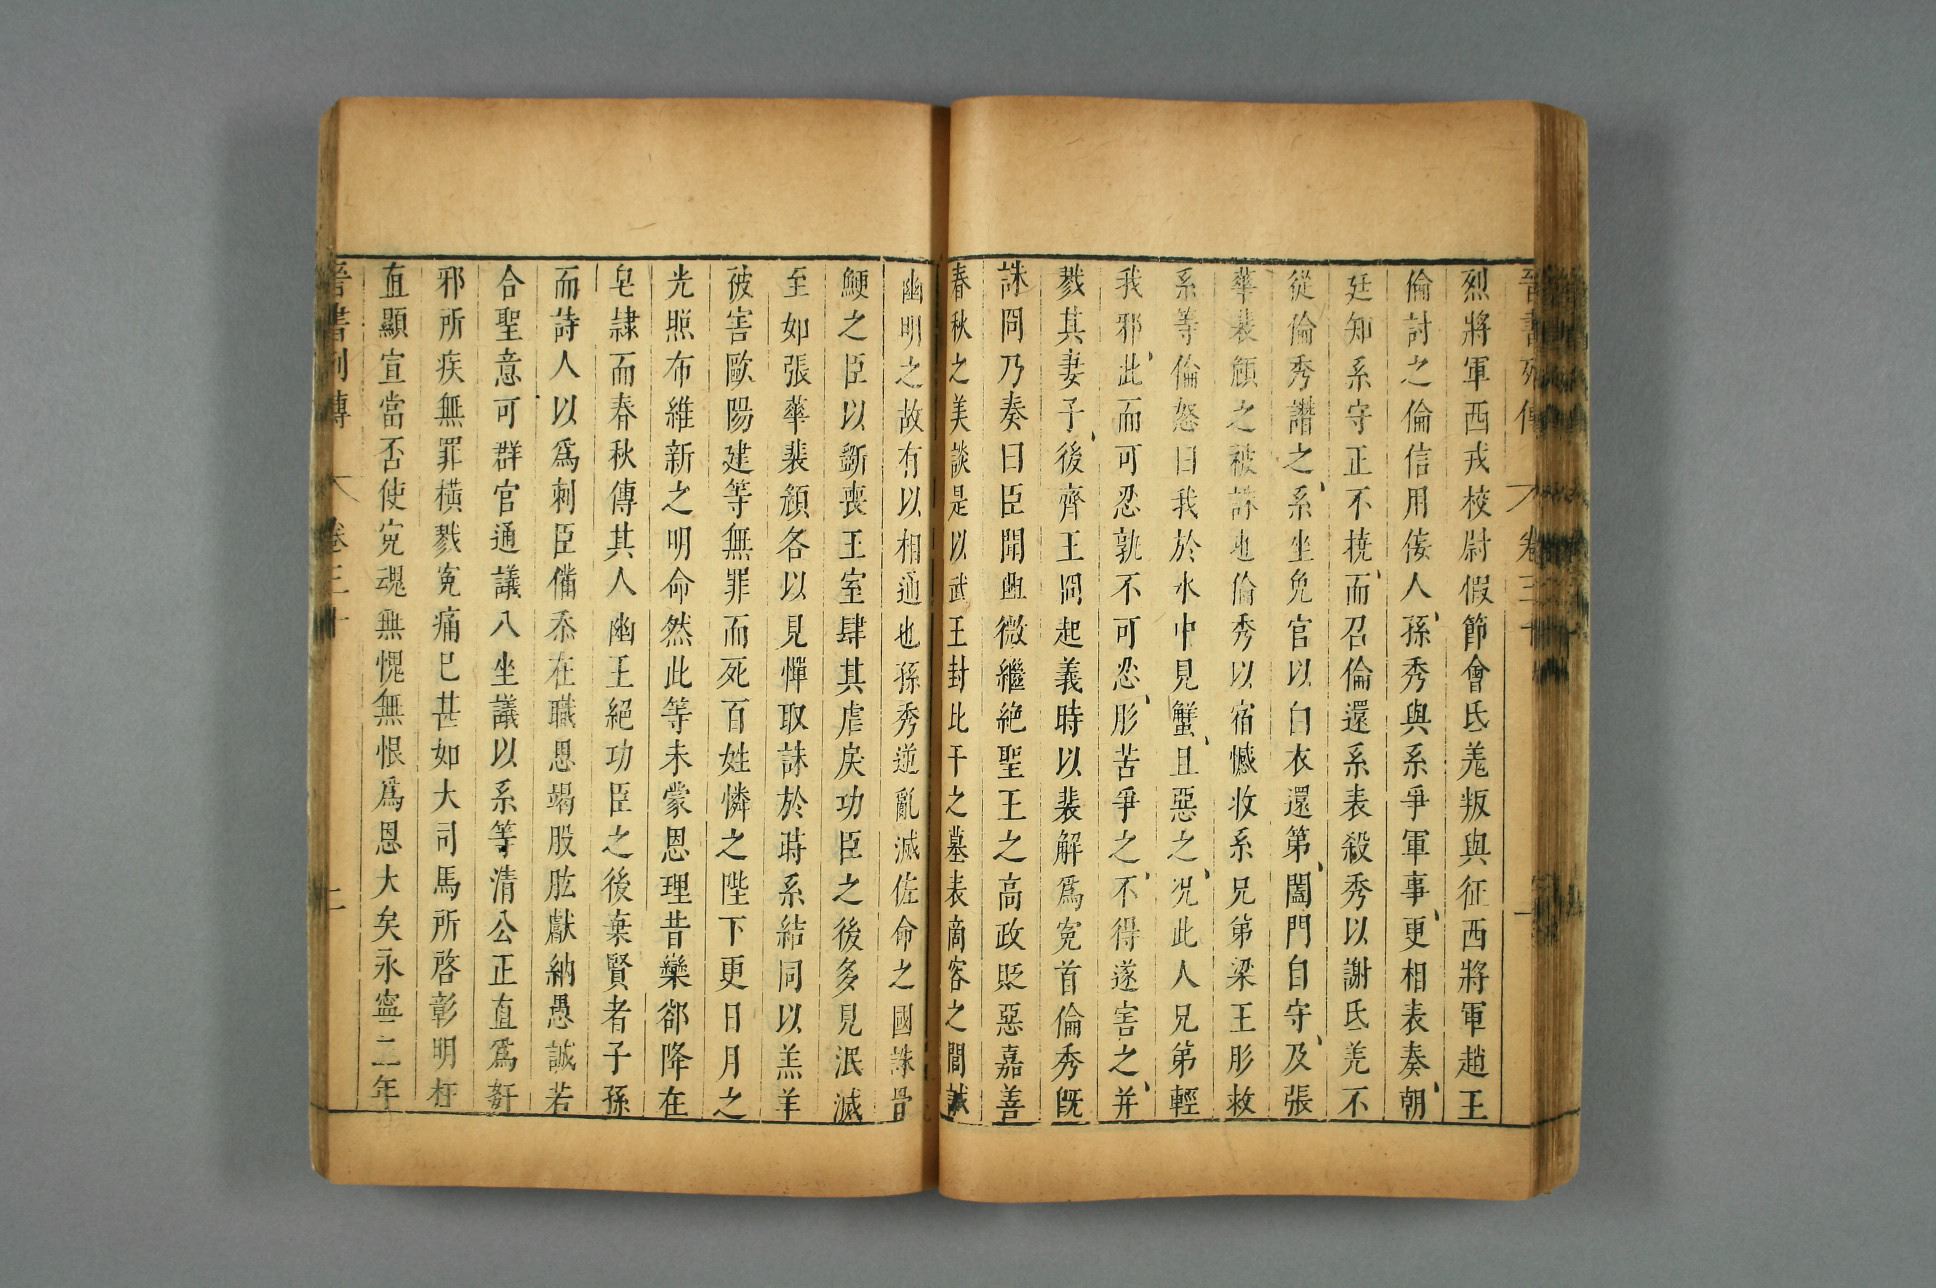 晉書列傳 卷三十 一
烈將軍西戎校尉假節會氐羗叛與征西將軍趙王
倫討之倫信用佞人孫秀與系爭軍事更相表奏朝
廷知系守正不撓而召倫還系表殺秀以謝氐羗不
從倫秀譖之系坐免官以白衣還第闔門自守及張
華裴頠之被誅也倫秀以宿憾收系兄弟梁王肜救
系等倫怒曰我於水中見蟹且惡之况此人兄弟輕
我邪此而可忍孰不可忍肜苦爭之不得遂害之并
戮其妻子後齊王冏起義時以裴解爲寃首倫秀旣
誅冏乃奏曰臣聞興微繼絶聖王之高政貶惡嘉善
春秋之美談是以武王封比干之墓表商容之閭誠
幽明之故有以相通也孫秀逆亂滅佐命之國誅骨
鯁之臣以斵喪王室肆其虐戾功臣之後多見泯滅
至如張華裴頠各以見憚取誅於時系結同以羔羊
彼害歐陽建等無罪而死百姓憐之陛下更日月之
光照布維新之明命然此等未蒙恩理昔欒郤降在
皁隷而春秋傳其人幽王絕功臣之後棄賢者子孫
而詩人以爲刺臣備忝在職思竭股肱獻納愚誠若
合聖意可群官通議八坐議以系等清公正直爲姧
邪所疾無罪橫戮寃痛已甚如大司馬所啓彰明枉
直顯宣當否使寃魂無愧無恨爲恩大矣永寧二年
晉書列傳 卷三十 二